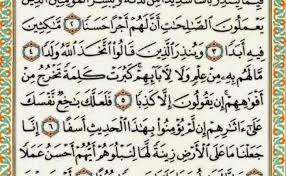 قَيِّمًا لِّيُنذِرَ بَأْسًا شَدِيدًا مِّن لَّدُنْهُ وَيُبَشِّرَ ٱلْمُؤْمِنِينَ ٱلَّذِينَ
يَعْمَلُونَ ٱلصَّٰلِحَٰتِ أَنَّ لَهُمْ أَجْرًا حَسَنًا ٢ مَّٰكِثِينَ
فِيهِ أَبَدًا ٣ وَيُنذِرَ ٱلَّذِينَ قَالُوا۟ ٱتَّخَذَ ٱللَّهُ وَلَدًا ٤
مَّا لَهُم بِهِۦ مِنْ عِلْمٍ وَلَا لِـَٔابَآئِهِمْ كَبُرَتْ كَلِمَةً تَخْرُجُ مِنْ
أَفْوَٰهِهِمْ إِن يَقُولُونَ إِلَّا كَذِبًا ٥ فَلَعَلَّكَ بَٰخِعٌ نَّفْسَكَ
عَلَىٰٓ ءَاثَٰرِهِمْ إِن لَّمْ يُؤْمِنُوا۟ بِهَٰذَا ٱلْحَدِيثِ أَسَفًا ٦ إِنَّا
جَعَلْنَا مَا عَلَى ٱلْأَرْضِ زِينَةً لَّهَا لِنَبْلُوَهُمْ أَيُّهُمْ أَحْسَنُ عَمَلًا